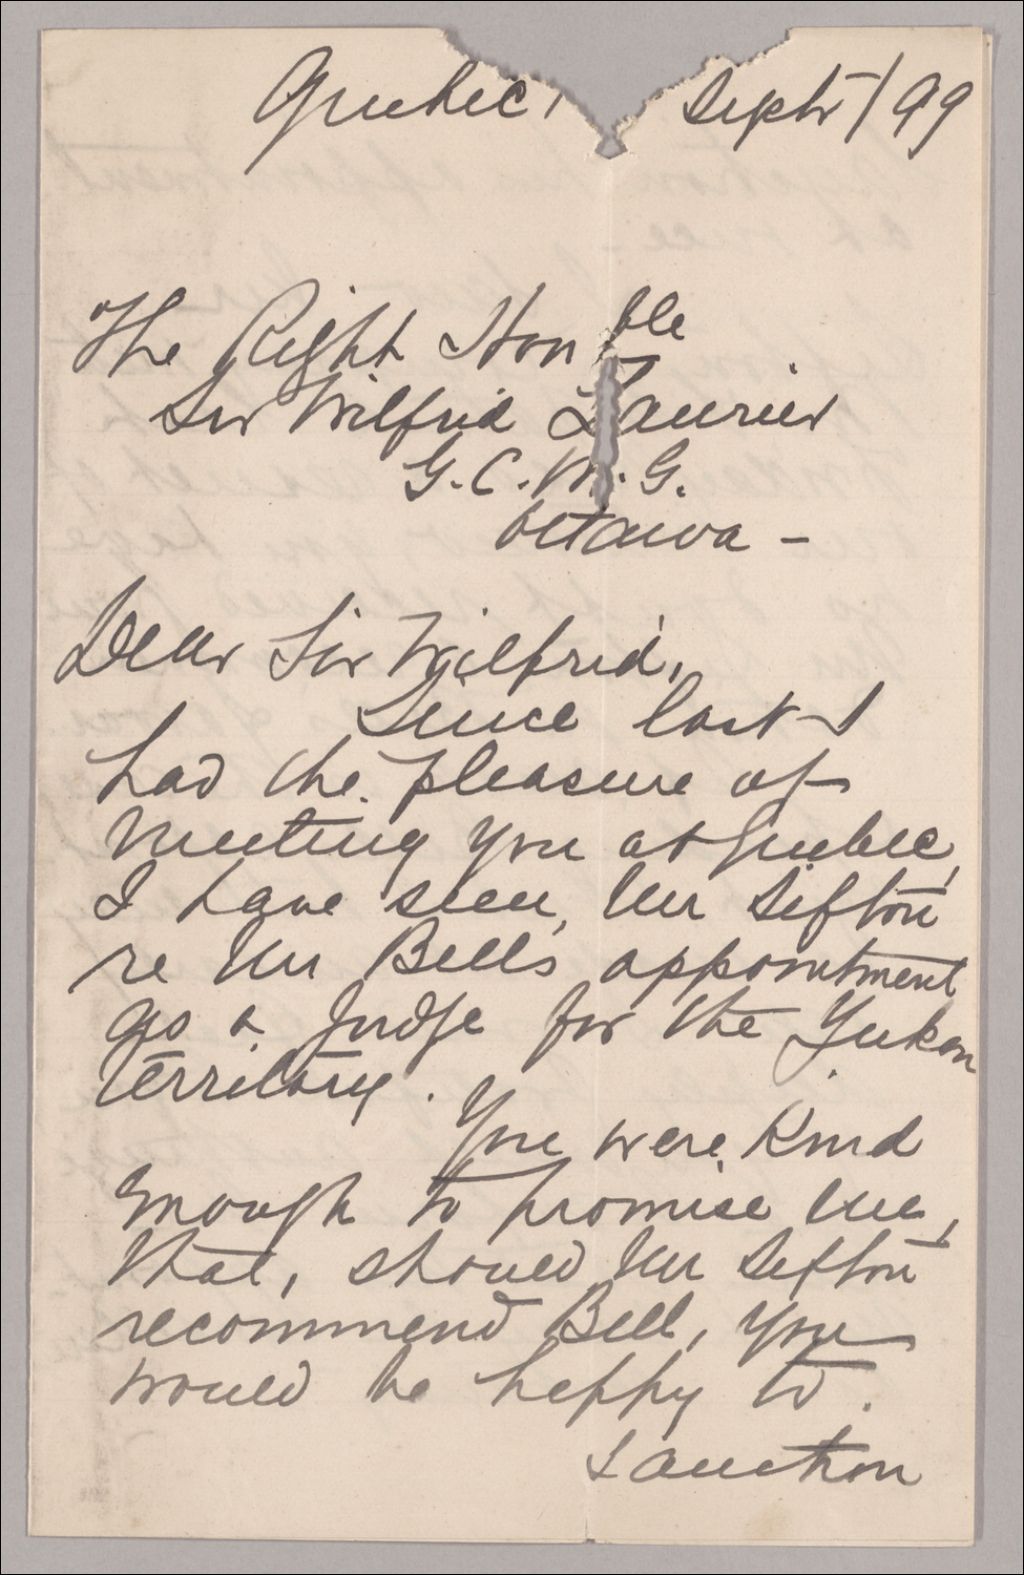 Quebec, Septr/99
The Right Honble
Sir Wilfrid Laurier
G.C.M.G.
Ottawa –
Dear Sir Wilfrid,
Since last I
had the pleasure of
meeting you at Quebec,
I have seen, Mr Sifton
re Mr Bell's appointment
as a Judge for the Yukon
Territory.
You were Kind
enough to promise me,
that, should Mr Sifton
recommend Bell, you
would be happy to
sanction